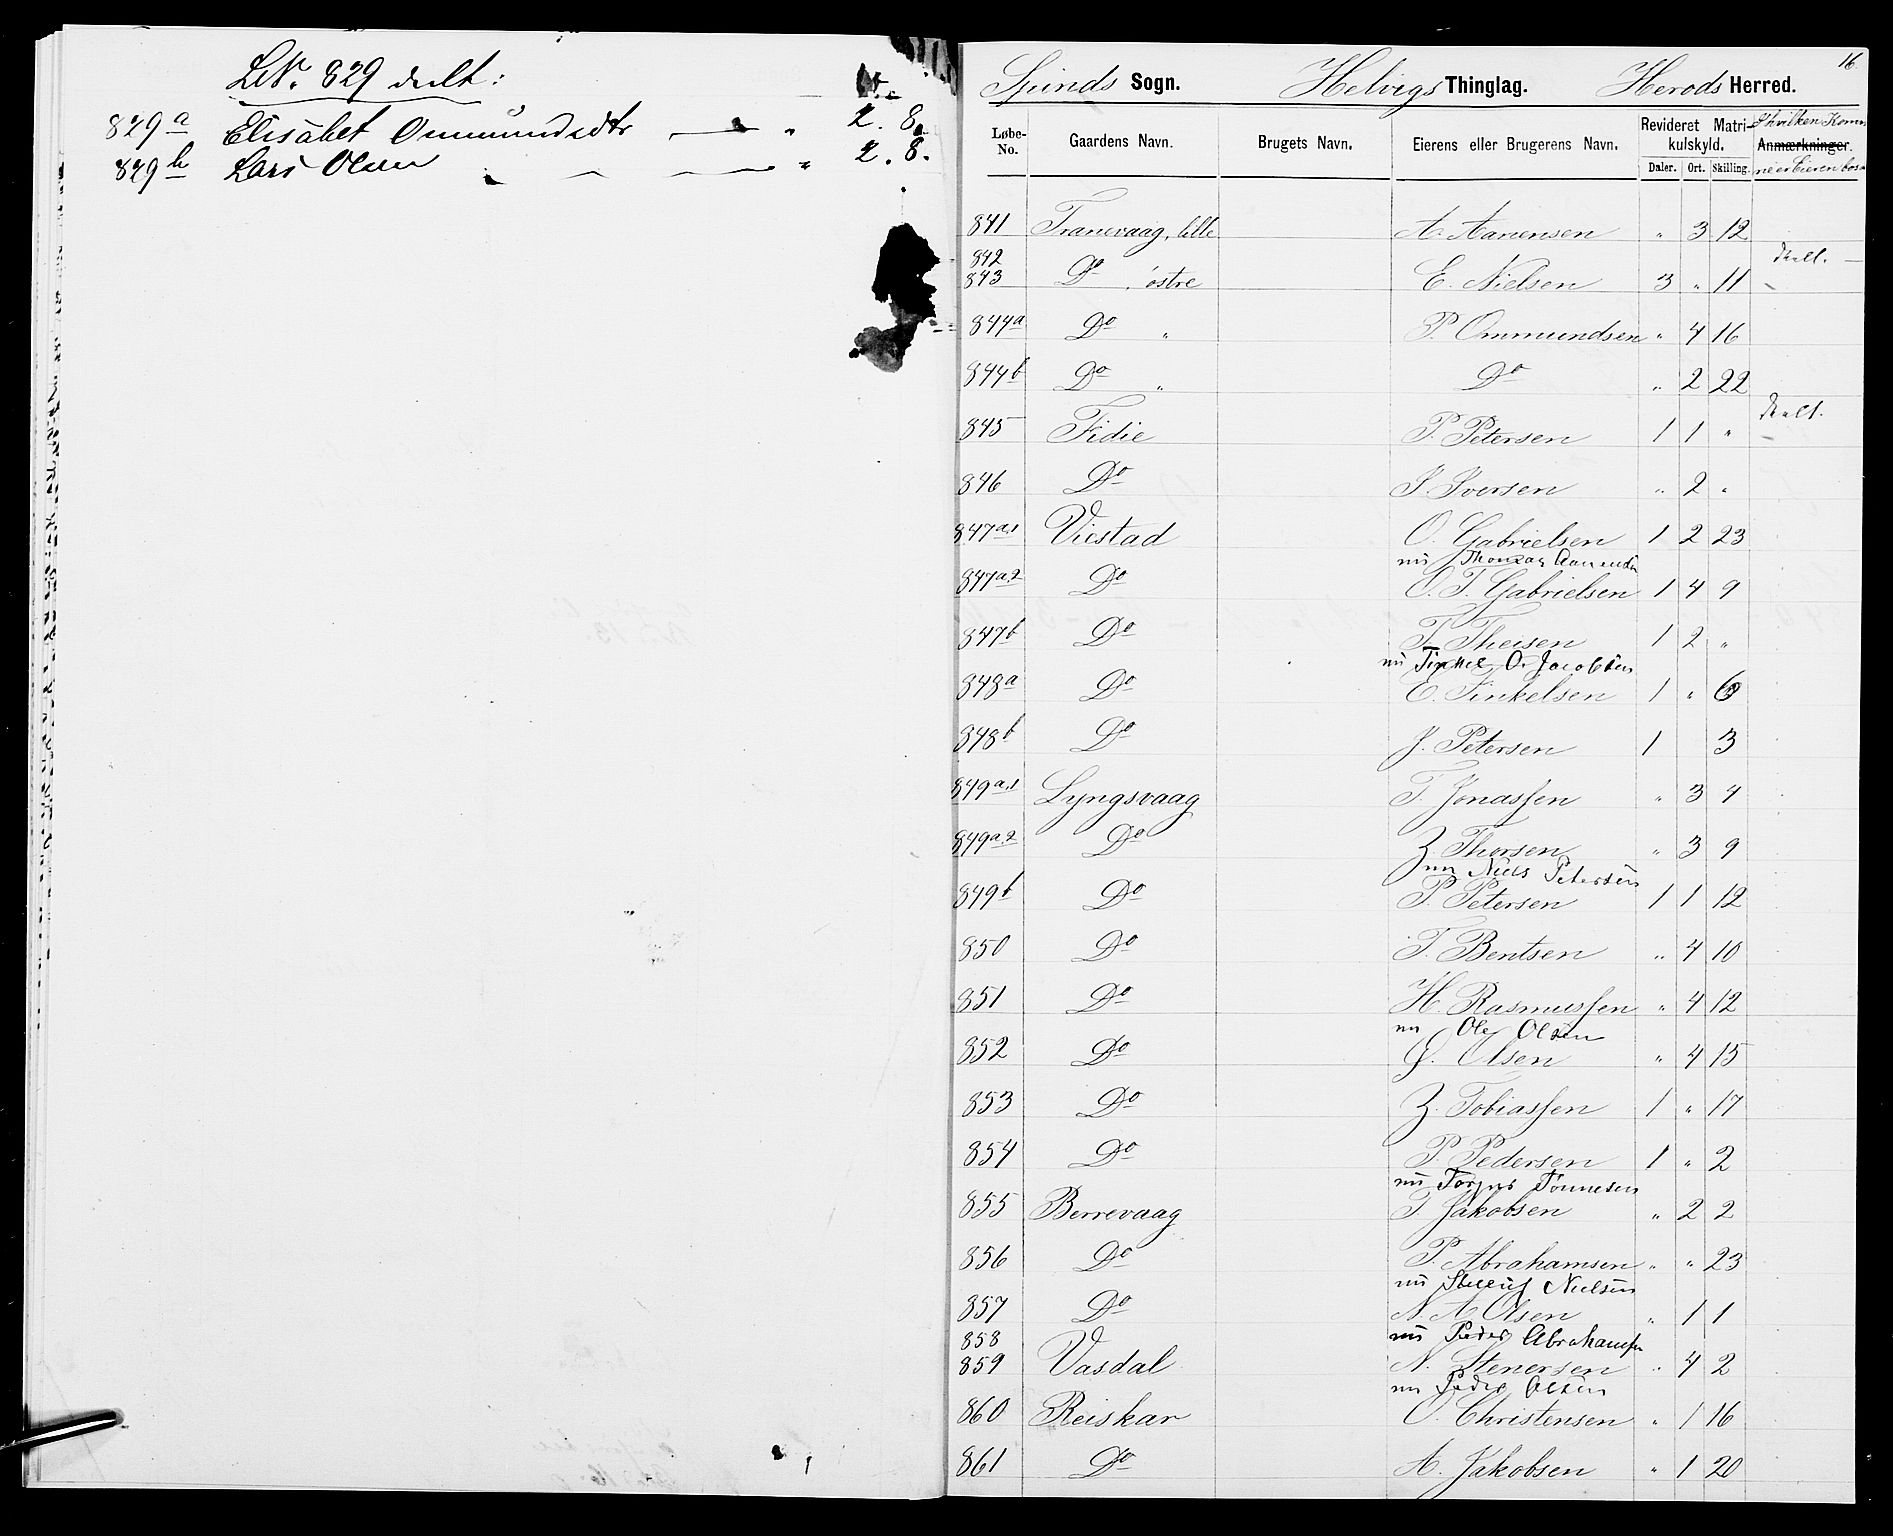 LNr. 829 delt:
829a Elisabet Ommundsdtr — " 2. 8.
829b Lars Olsen " — — " 2. 8.
16
Spinds Sogn. Helvigs Thinglag. Herods Herred.
Løbe-No. Gaardens Navn. Brugets Navn. Eierens eller Brugerens Navn. Revideret Matrikulskyld. Anmærkninger.
Daler. Ort. Skilling.
841 Tranevaag, lille A. Aanensen " 3 12
842 delt.
843 Do , østre E. Nielsen 3 " 11
844a Do " P. Ommundsen " 4 16
844b Do " Do " 2 22
845 Fidie P. Petersen 1 1 " delt.
846 Do I. Iversen " 2 "
847a,1 Viestad O. Gabrielsen 1 2 23
nu Thomas
847a,2 Do O. T. Gabrielsen 1 4 9
847b Do T. Theisen 1 2 "
nu Tinkel O. Jacobsen
848a Do E. Tinkelsen 1 " 6
848b Do J. Petersen 1 3
849a,1 Lyngsvaag T. Jonassen " 3 4
849a,2 Do Z. Thorsen " 3 9
nu Niels Petersen
849b Do P. Petersen 1 1 12
850 Do T. Bentsen " 4 10
851 Do H. Rasmussen " 4 12
nu Ole Olsen
852 Do G. Olsen " 4 15
853 Do Z. Tobiassen 1 " 17
854 Do P. Pedersen 1 " 2
nu Torjus Tönnesen
855 Berrevaag T. Jakobsen " 2 2
856 Do P. Abrahamsen " " 23
nu Nielsen
857 Do N. A. Olsen " 1 1
858 nu Peder Abrahamsen
859 Vasdal N. Stenersen " 4 2
nu Peder Olsen
860 Reiskar O. Christensen " 1 16
861 Do A. Jakobsen " 1 20